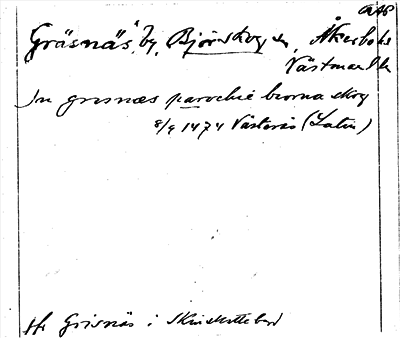 Gräsnäs, by, Björskog sn, Åkerbo hd
Västmanl. l.
In grısnæs parochie biorna skog
8/9 1474 Västerås (Latin)
Grisnäs i Skinskatteberg